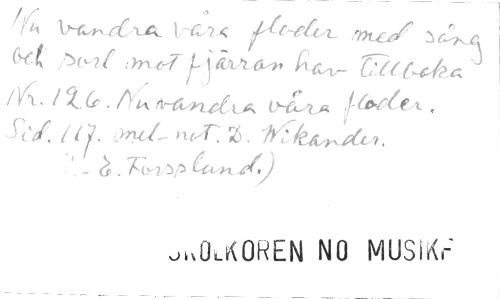 Nu vandra våra floder med sång
och sorl mot fjärran hav tillbaka
Nr. 126. Nu vandra våra floder.
Sid. 117. mel-not. D. Wikander.
- E. Forsslund.)
SKOLKÖREN NO MUSIK